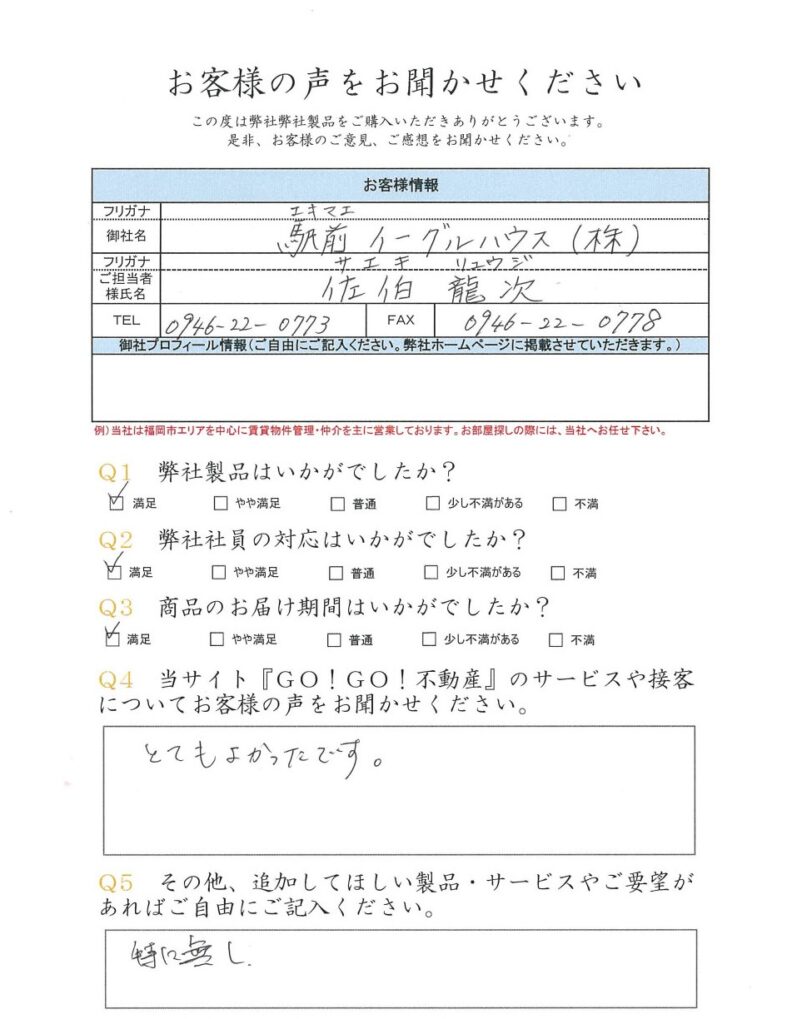 お客様の声をお聞かせください
この度は弊社弊社製品をご購入いただきありがとうございます。
是非、お客様のご意見、ご感想をお聞かせください。
お客様情報
フリガナ エキマエ
御社名 駅前イーグルハウス(株)
フリガナ サエキ リュウジ
ご担当者様氏名 佐伯 龍次
TEL 0946-22-0773 FAX 0946-22-0778
御社プロフィール情報(ご自由にご記入ください。弊社ホームページに掲載させていただきます。)
例)当社は福岡市エリアを中心に賃貸物件管理・仲介を主に営業しております。お部屋探しの際には、当社へお任せ下さい。
Q1 弊社製品はいかがでしたか?
☑ 満足 □ やや満足 □ 普通 □ 少し不満がある □ 不満
Q2 弊社社員の対応はいかがでしたか?
☑ 満足 □ やや満足 □ 普通 □ 少し不満がある □ 不満
Q3 商品のお届け期間はいかがでしたか?
☑ 満足 □ やや満足 □ 普通 □ 少し不満がある □ 不満
Q4 当サイト『GO!GO!不動産』のサービスや接客
についてお客様の声をお聞かせください。
とてもよかったです。
Q5 その他、追加してほしい製品・サービスやご要望が
あればご自由にご記入ください。
特に無し.